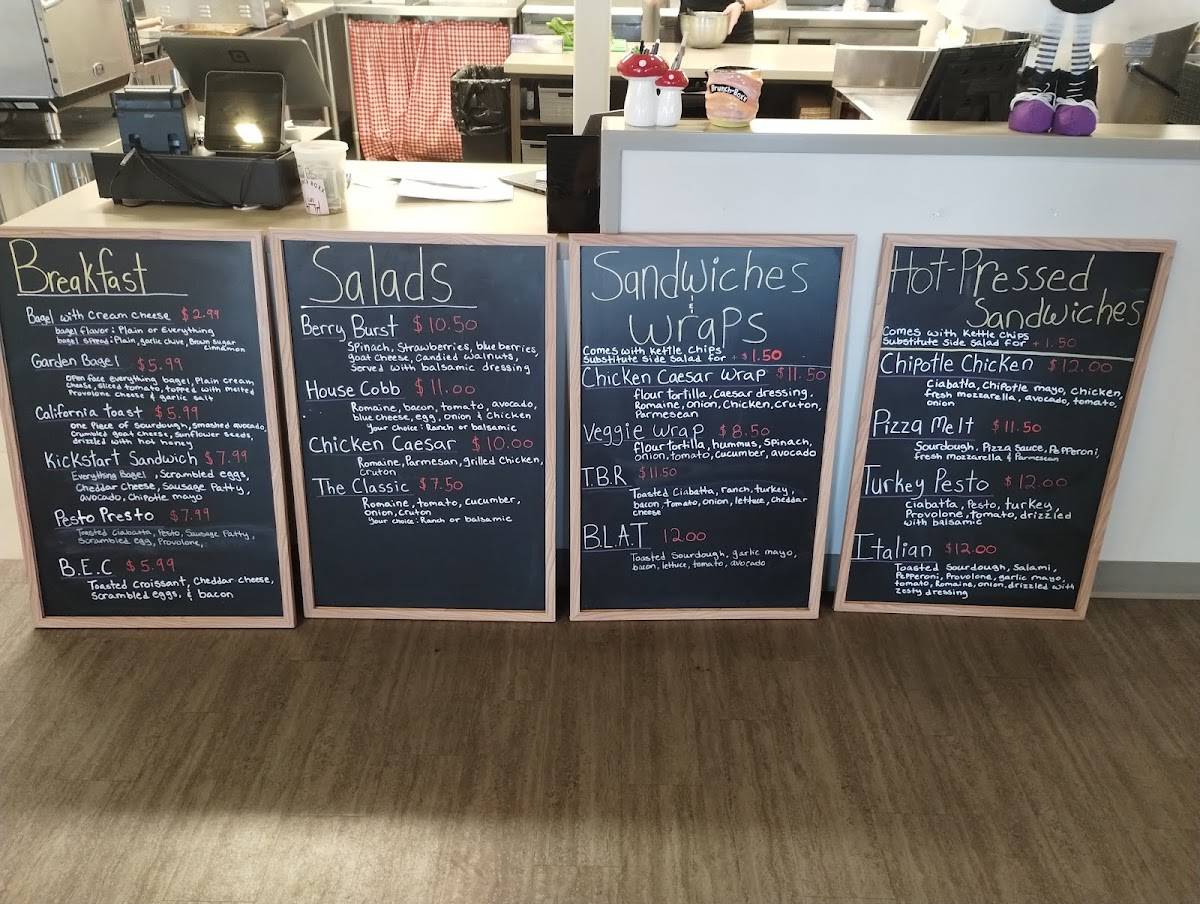 Brunch Box
Breakfast
Bagel with cream cheese $2.99
bagel flavor: Plain or Everything
bagel spread: Plain, garlic chive, Brown sugar
cinnamon
Garden Bagel $5.99
open face everything bagel, Plain cream
cheese, sliced tomato, topped with melted
Provolone cheese & garlic salt
California toast $5.99
one Piece of Sourdough, smashed avocado,
crumbled goat cheese, sunflower seeds,
drizzled with hot honey
Kickstart Sandwich $7.99
Everything Bagel, Scrambled eggs,
Cheddar cheese, Sausage Patty,
avocado, Chipotle mayo
Pesto Presto $7.99
Toasted Ciabatta, Pesto, Sausage Patty,
Scrambled egg, Provolone,
B.E.C $5.99
Toasted Croissant, Cheddar cheese,
Scrambled eggs, & bacon
Salads
Berry Burst $10.50
Spinach, Strawberries, blueberries,
goat cheese, candied walnuts,
Served with balsamic dressing
House Cobb $11.00
Romaine, bacon, tomato, avocado,
blue cheese, egg, onion & Chicken
Your choice: Ranch or balsamic
Chicken Caesar $10.00
Romaine, Parmesan, grilled Chicken,
Cruton
The Classic $7.50
Romaine, tomato, cucumber,
onion, Cruton
Your choice: Ranch or balsamic
Sandwiches
&
wraps
Comes with kettle chips
Substitute side salad for +$1.50
Chicken Caesar wrap $11.50
flour tortilla, Caesar dressing,
Romaine, onion, Chicken, Cruton,
Parmesean
Veggie wrap $8.50
flour tortilla, hummus, spinach,
onion, tomato, cucumber, avocado
T.B.R $11.50
Toasted Ciabatta, ranch, turkey,
bacon, tomato, onion, lettuce, cheddar
cheese
B.L.A.T 12.00
Toasted Sourdough, garlic mayo,
bacon, lettuce, tomato, avocado
Hot-Pressed
Sandwiches
Comes with Kettle Chips
Substitute side Salad for +1.50
Chipotle Chicken $12.00
Ciabatta, Chipotle mayo, chicken,
fresh mozzarella, avocado, tomato,
onion
Pizza Melt $11.50
Sourdough, Pizza sauce, Pepperoni,
fresh mozzarella & Parmesean
Turkey Pesto $12.00
Ciabatta, Pesto, turkey,
Provolone, tomato, drizzled
with balsamic
Italian $12.00
Toasted Sourdough, Salami,
Pepperoni, Provolone, garlic mayo,
tomato, Romaine, onion, drizzled with
zesty dressing